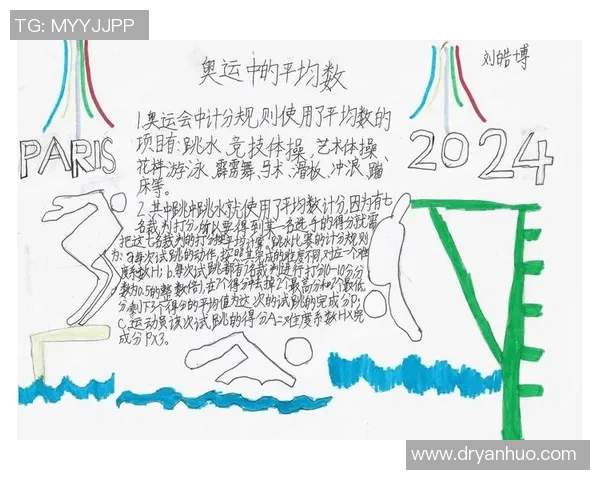 TG: MYYJJPP
奥运中的平均数
刘皓博
PARIS
2024
1.奥运会中计分规则使用了平均数的
项目有:跳水、竞技体操、艺术体操、
花样游泳、霹雳舞、马术、滑板、冲浪、蹦
床等。
2.其中跳水就使用了平均数计分,因为有七
名裁判打分,所以要得到某一名选手的得分就需
把这七名裁判的打分
跳水比赛的计分规则
为:a.每次试跳的动作,按照其完成的难度不同对应一个难
度系数H;b.每次试跳都有7名裁判进行打分(0-10分,分
数为0.5的整数倍),在7个得分中去掉2个最高分和2个最低
分,剩下3个得分的平均值为这次的试跳的完成分P;
C.运动员该次试跳的得分A=难度系数HX完
成分PX3。
www.dryanhuo.com